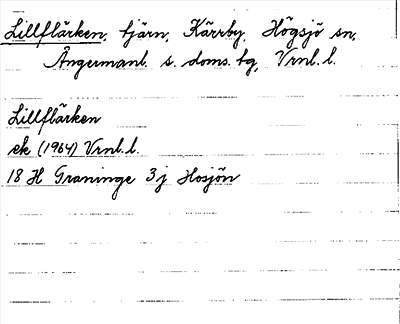 Lillflärken, tjärn, Kärrby, Högsjö sn,
Ångermanl. s. doms. tg, Vrnl. l.
Lillflärken
ek (1964) Vrnl. l.
18 H Graninge 3 j Hosjön